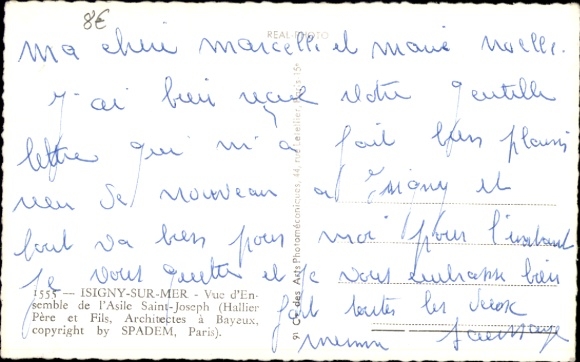 8€
REAL-PHOTO
Ma cheri Marcelli et Marie Noelli.
J'ai bien reçue votre gentille
lettre qui m'a fait bien plaisir
rien de nouveau a Isigny et
tout va bien pour moi pour l'instant
Je vous quitte et je vous embrasse bien
fort toutes les deux
1555 — ISIGNY-SUR-MER - Vue d'En-
semble de l'Asile Saint-Joseph (Hallier
Père et Fils, Architectes à Bayeux,
copyright by SPADEM, Paris).
Cie des Arts Photomécaniques, 44, rue Letellier, Paris 15e